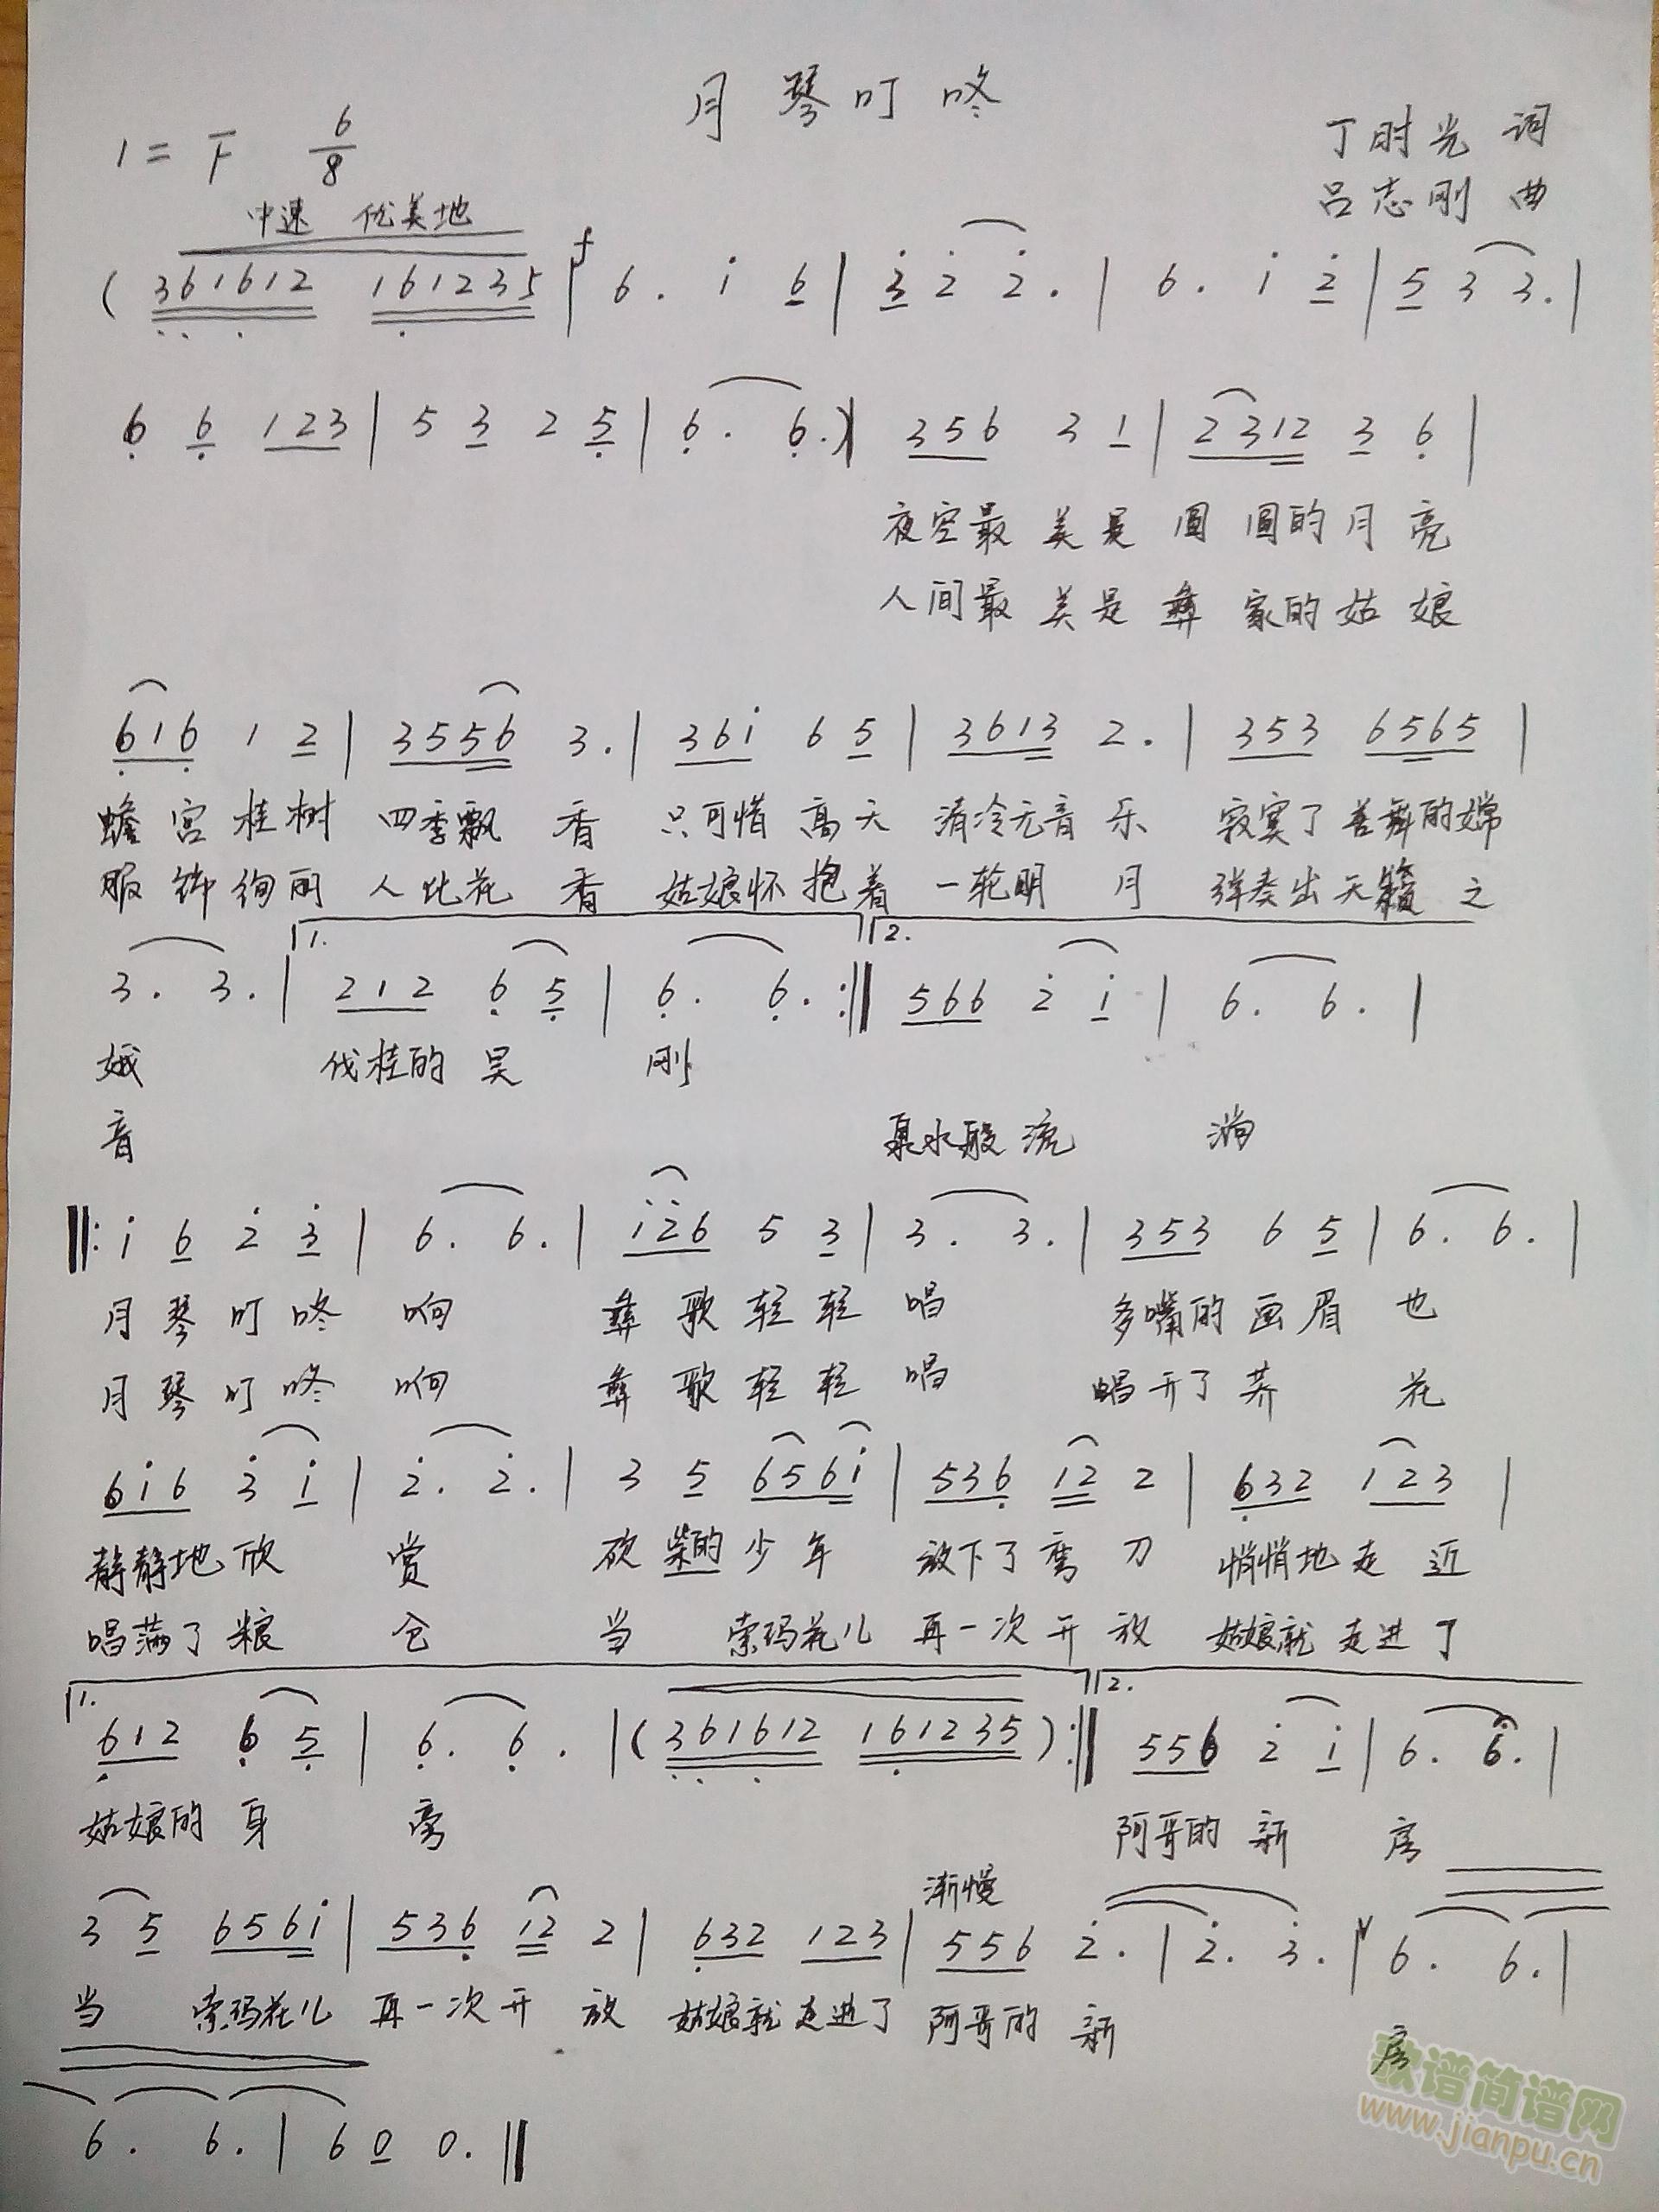 月琴叮咚
1=F 6/8
丁时光 词
吕志刚 曲
中速 优美地
(361612 161235 | f 6. i 6 | 3 2 2. | 6. i 2 | 5 3 3. |
6 6 123 | 5 3 2 5 | 6. 6.) | 356 3 1 | 2312 3 6 |
夜空最 美是 圆 圆的月 亮
人间最 美是 彝 家的姑 娘
616 1 2 | 3556 3. | 36i 6 5 | 3613 2. | 353 6565 |
蟾宫桂树 四季飘 香 只可惜 高天 清冷无音 乐 寂寞了 善舞的嫦
服饰绚丽 人比花 香 姑娘怀 抱着 一轮明 月 弹奏出 天籁 之
1. 2.
3. 3. | 212 6 5 | 6. 6. :‖ 566 2 i | 6. 6. |
娥 伐桂的 吴 刚
音 泉水般 流 淌
‖: i 6 2 3 | 6. 6. | i26 5 3 | 3. 3. | 353 6 5 | 6. 6. |
月琴叮咚 响 彝歌轻轻 唱 多嘴的画眉 也
月琴叮咚 响 彝歌轻轻 唱 唱开了荞 花
6i6 3 i | 2. 2. | 3 5 656i | 536 12 2 | 632 123 |
静静地欣 赏 砍柴的少年 放下了弯刀 悄悄地走近
唱满了粮 仓 当 索玛花儿 再一次开放 姑娘就走进了
1. 2.
612 6 5 | 6. 6. | (361612 161235) :‖ 556 2 i | 6. 6. |
姑娘的身 旁 阿哥的 新 房
渐慢
3 5 656i | 536 12 2 | 632 123 | 556 2. | 2. 3. | 6. 6. |
当 索玛花儿 再一次开 放 姑娘就走进了 阿哥的 新 房
6. 6. | 6 0 0. ‖
歌谱简谱网
www.jianpu.cn